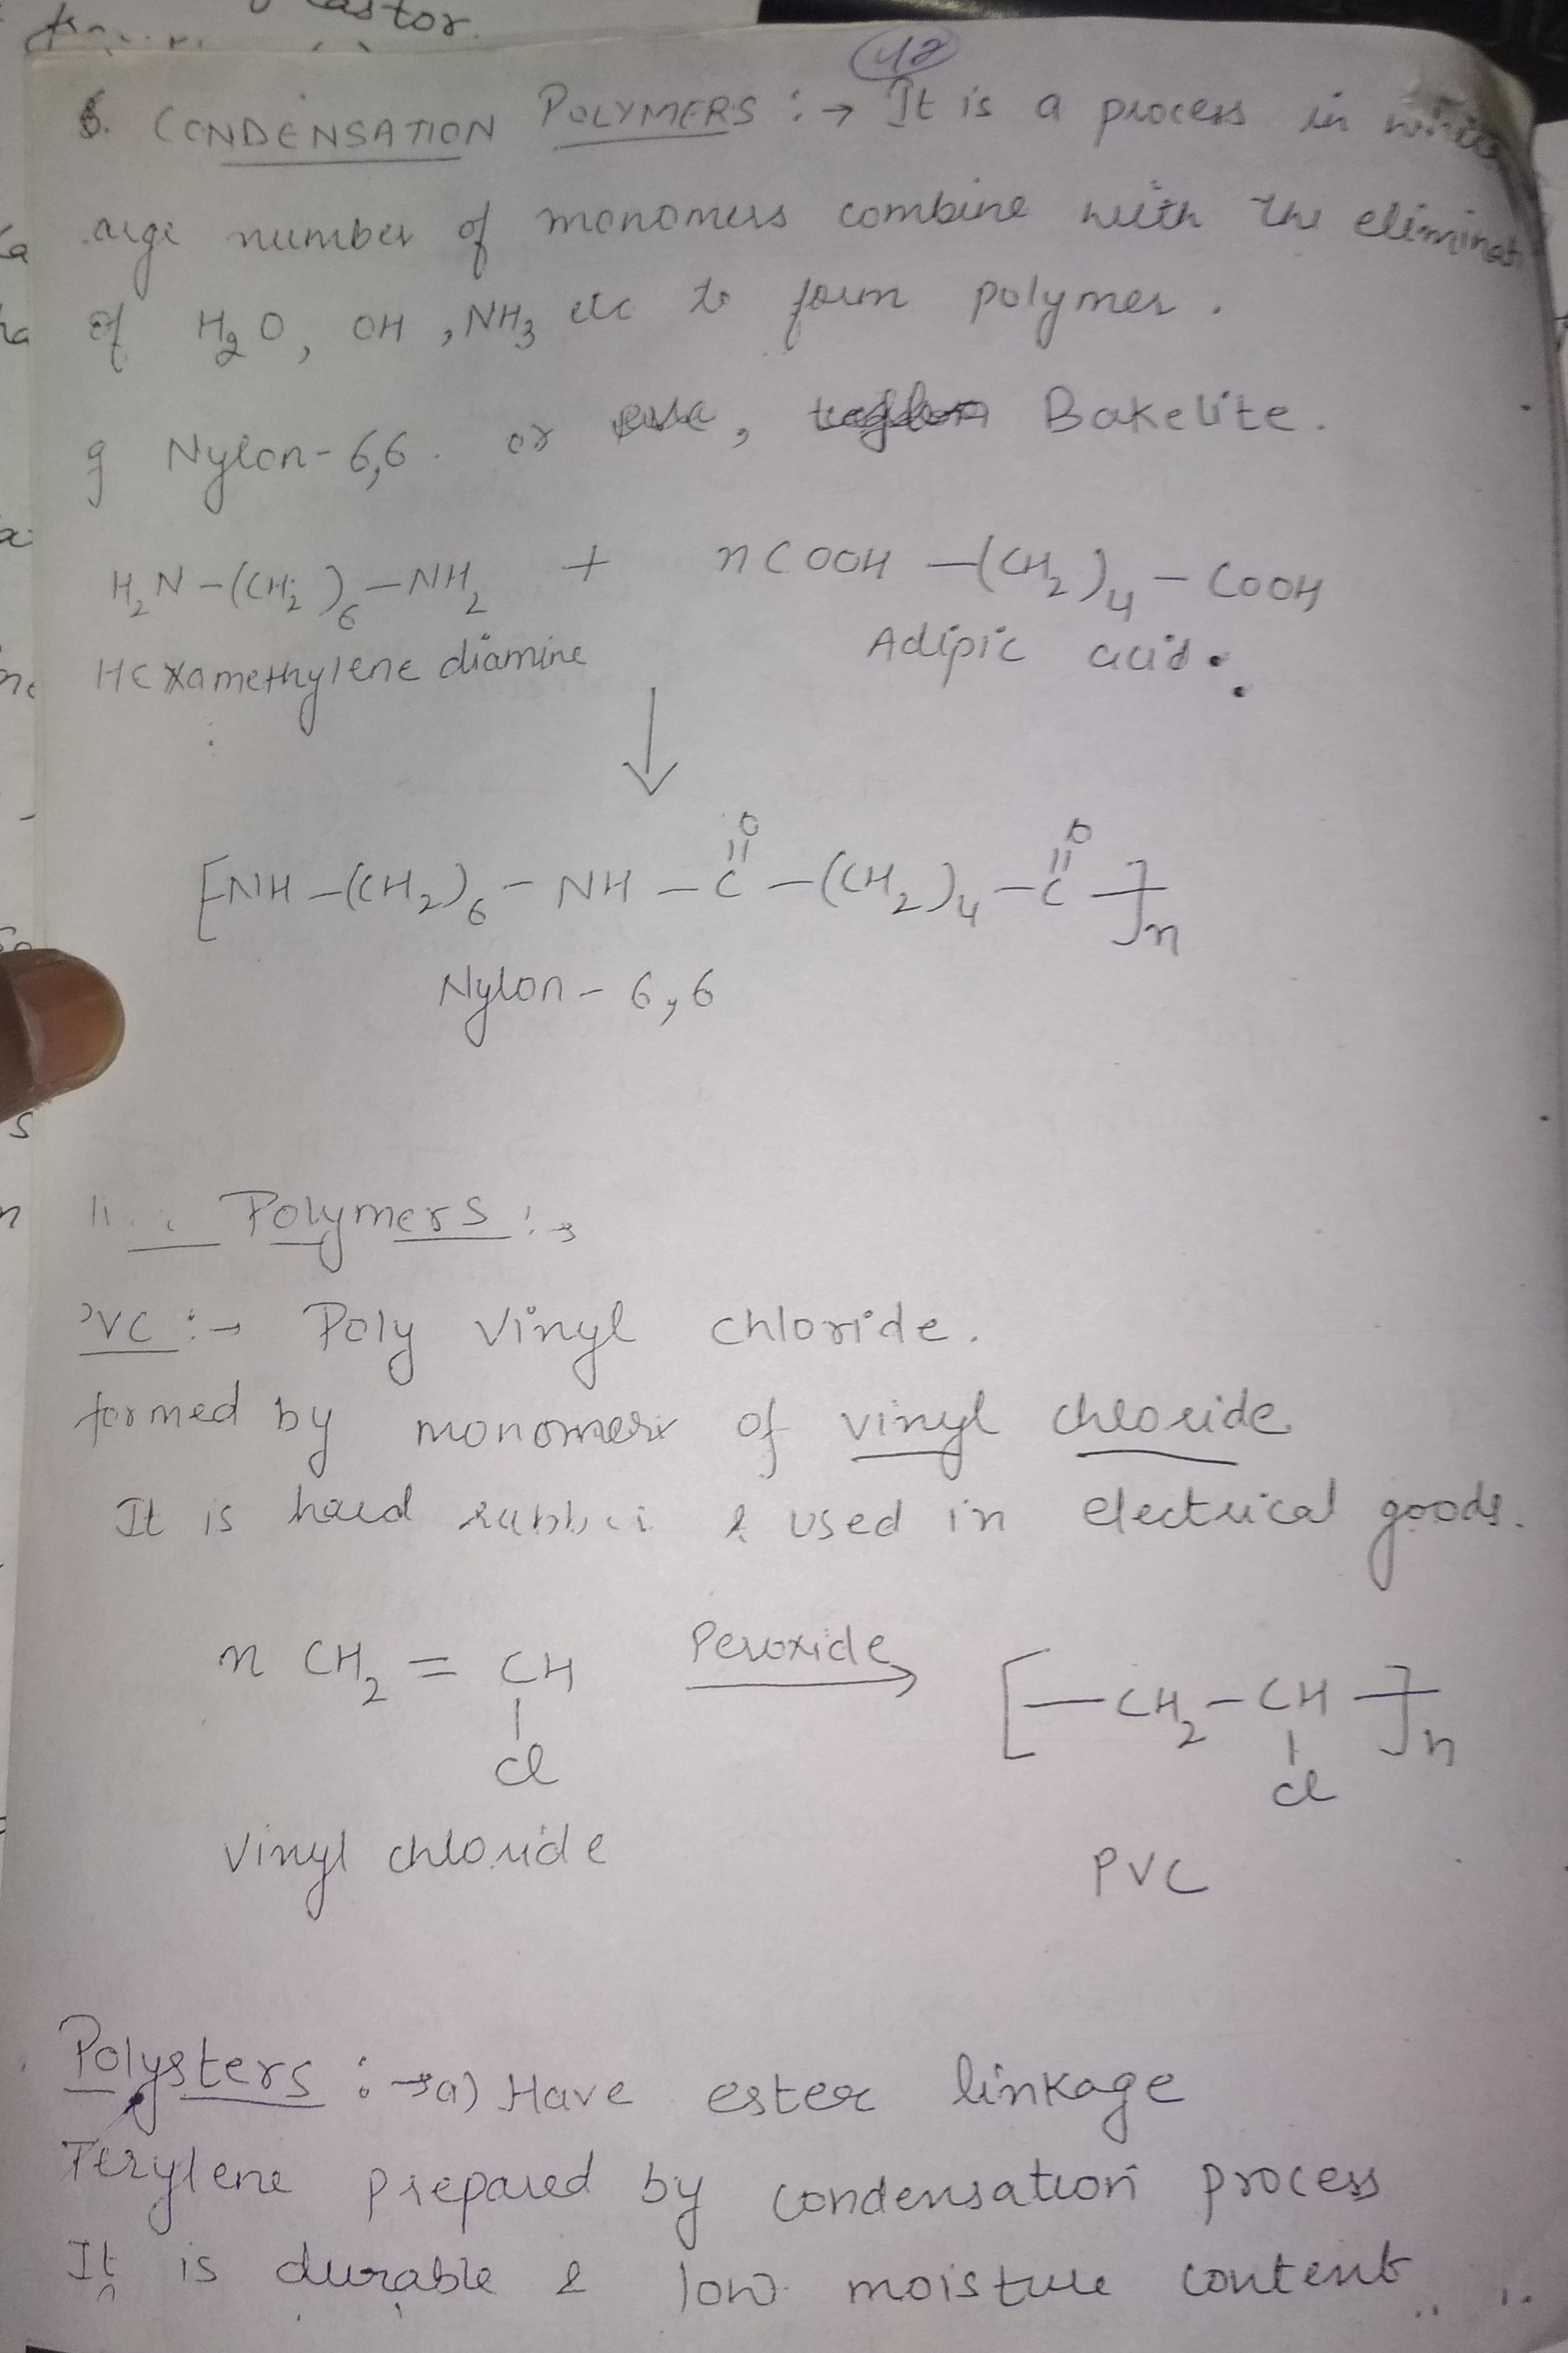 castor.
42
6. CONDENSATION POLYMERS :→ It is a process in
number of monomers combine with the eliminat
of H2O, OH, NH3 etc to form polymer.
g Nylon-6,6. or Bakelite.
H2N-(CH2)6-NH2 + nCOOH-(CH2)4-COOH
Hexamethylene diamine Adipic acid.
↓
O O
|| ||
[NH-(CH2)6-NH-C-(CH2)4-C-]n
Nylon-6,6
Polymers :→
VC :→ Poly vinyl chloride.
formed by monomer of vinyl chloride
It is hard rubber & used in electrical goods.
n CH2 = CH Peroxide → [-CH2-CH-]n
| |
Cl Cl
Vinyl chloride PVC
Polysters :→ a) Have ester linkage
Terylene prepared by condensation process
It is durable & low moisture content